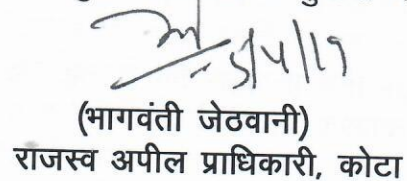 5/4/19
(भागवंती जेठवानी)
राजस्व अपील प्राधिकारी, कोटा